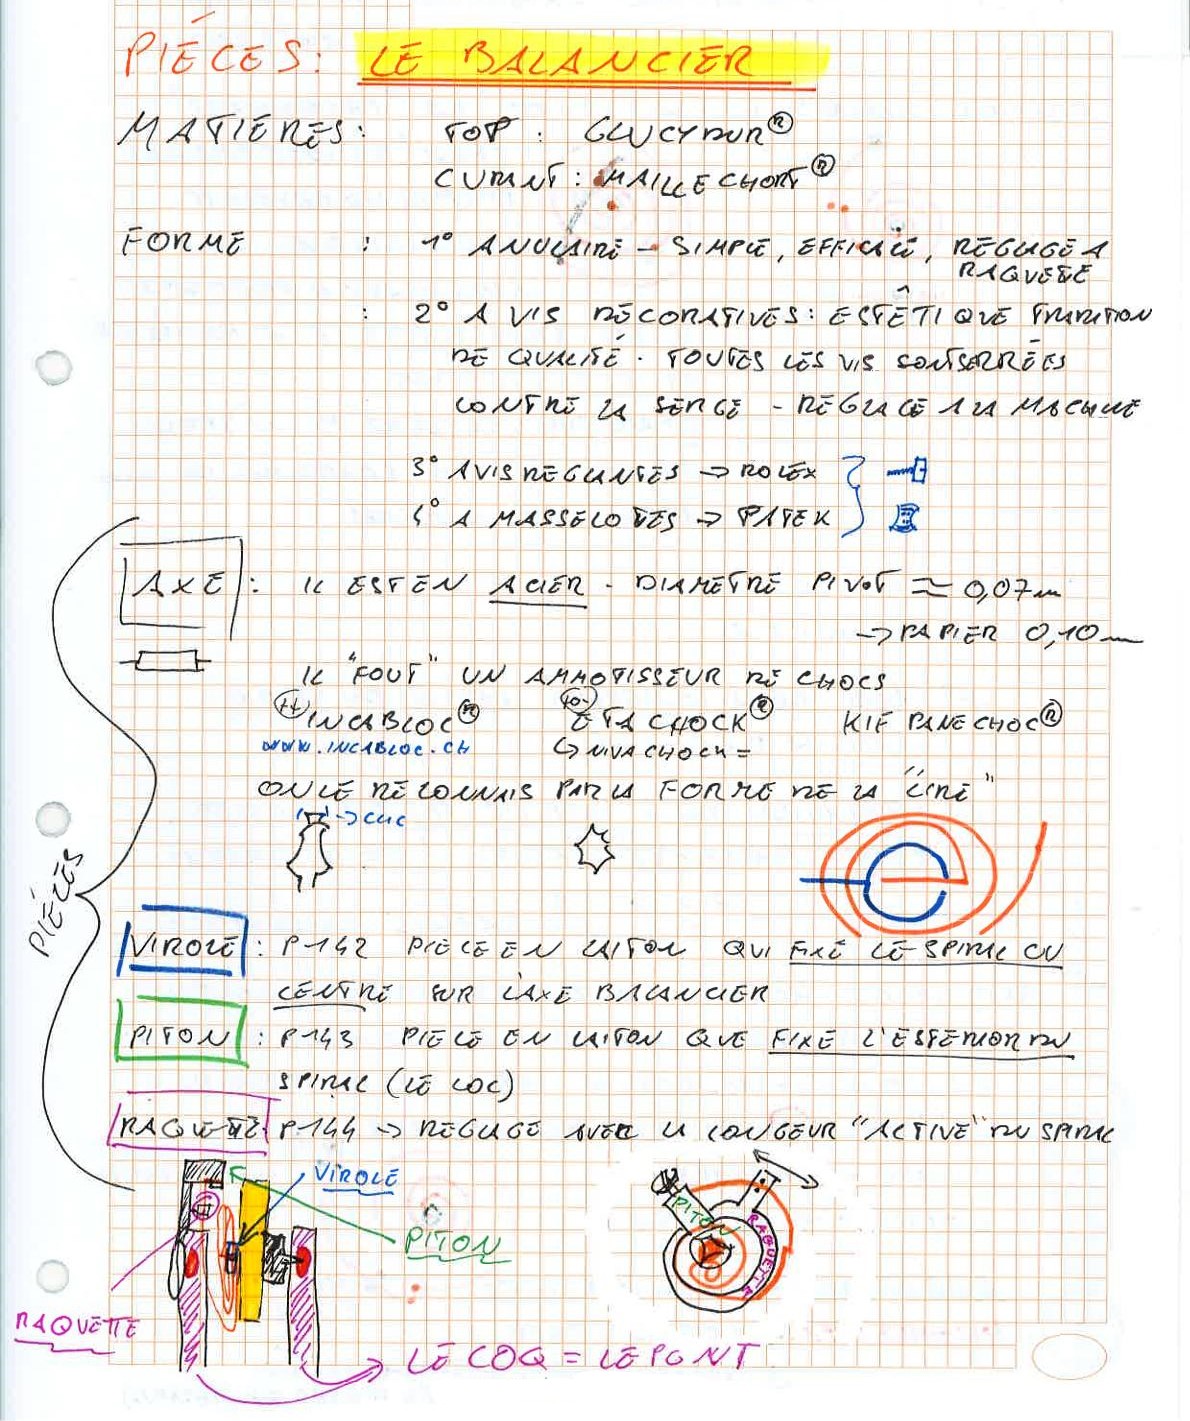 PIÉCES: LE BALANCIER
MATIÉRES: TOP: GLUCYDUR®
CURANT: MAILLECHORT®
FORME : 1° ANULAIRE - SIMPLE, EFFICACE, REGLAGE A
RAQUETTE
: 2° A VIS DECORATIVES: ESTÊTIQUE TRADITION
DE QUALITÉ. TOUTES LES VIS SONT SERRÉES
CONTRE LA SERGE - REGLAGE A LA MACHINE
3° A VIS REGLANTES → ROLEX
4° A MASSELOTTES → PATEK
AXE : IL EST EN ACIER - DIAMETRE PIVOT ≈ 0,07m
→ PAPIER 0,10m
IL "FOUT" UN AMMOTISSEUR DE CHOCS
INCABLOC® ETACHOCK® KIF PARECHOC®
WWW.INCABLOC.CH ↳ NIVACHOCK =
ON LE RECONNAIS PAR LA FORME DE LA "LIRE"
→ CLIC
PIÉCES
VIROLE : P-142 PIECE EN LAITON QUI FIXE LE SPIRAL CU
CENTRE SUR L'AXE BALANCIER
PITON : P-143 PIECE EN LAITON QUE FIXE L'ESTERIOR DU
SPIRAL (LE COC)
RAQUETTE: P.144 → REGLAGE AVEC LA LONGEUR "ACTIVE" DU SPIRAL
VIROLE
PITON
PITON
RAQUETTE
RAQUETTE
LE COQ = LE PONT